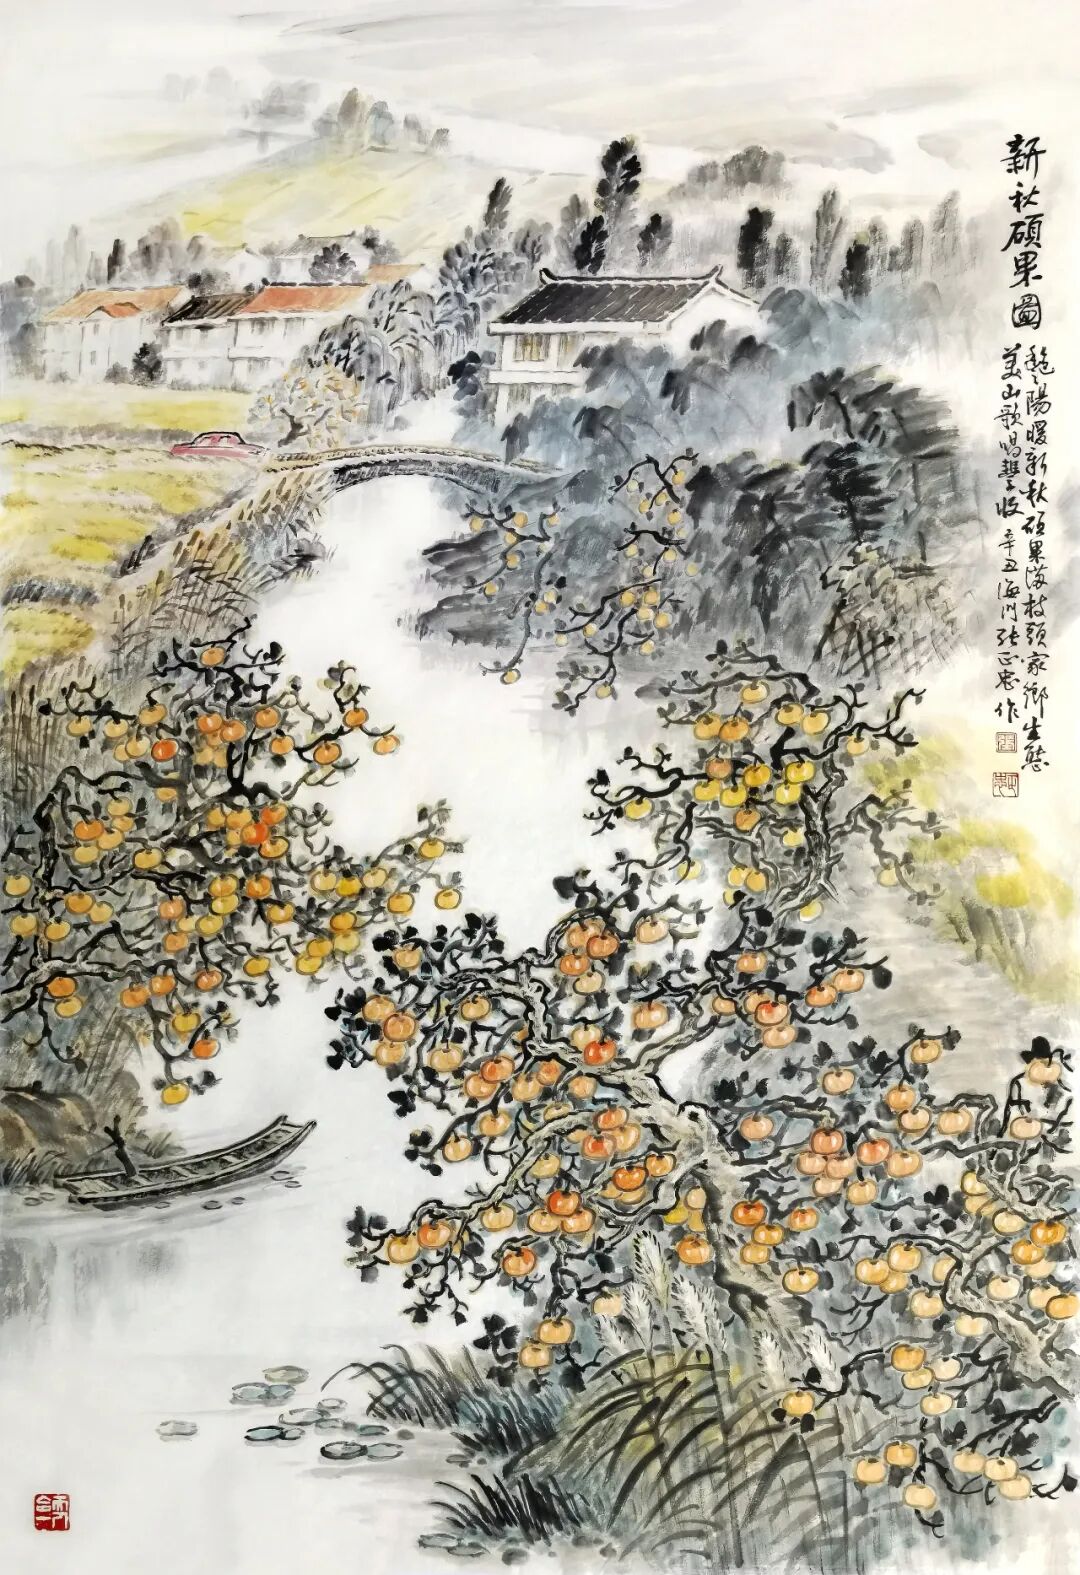 新秋碩果圖
艷陽暖新秋碩果滿枝頭家鄉生態
美山歌唱豐收 辛丑海门张正忠作